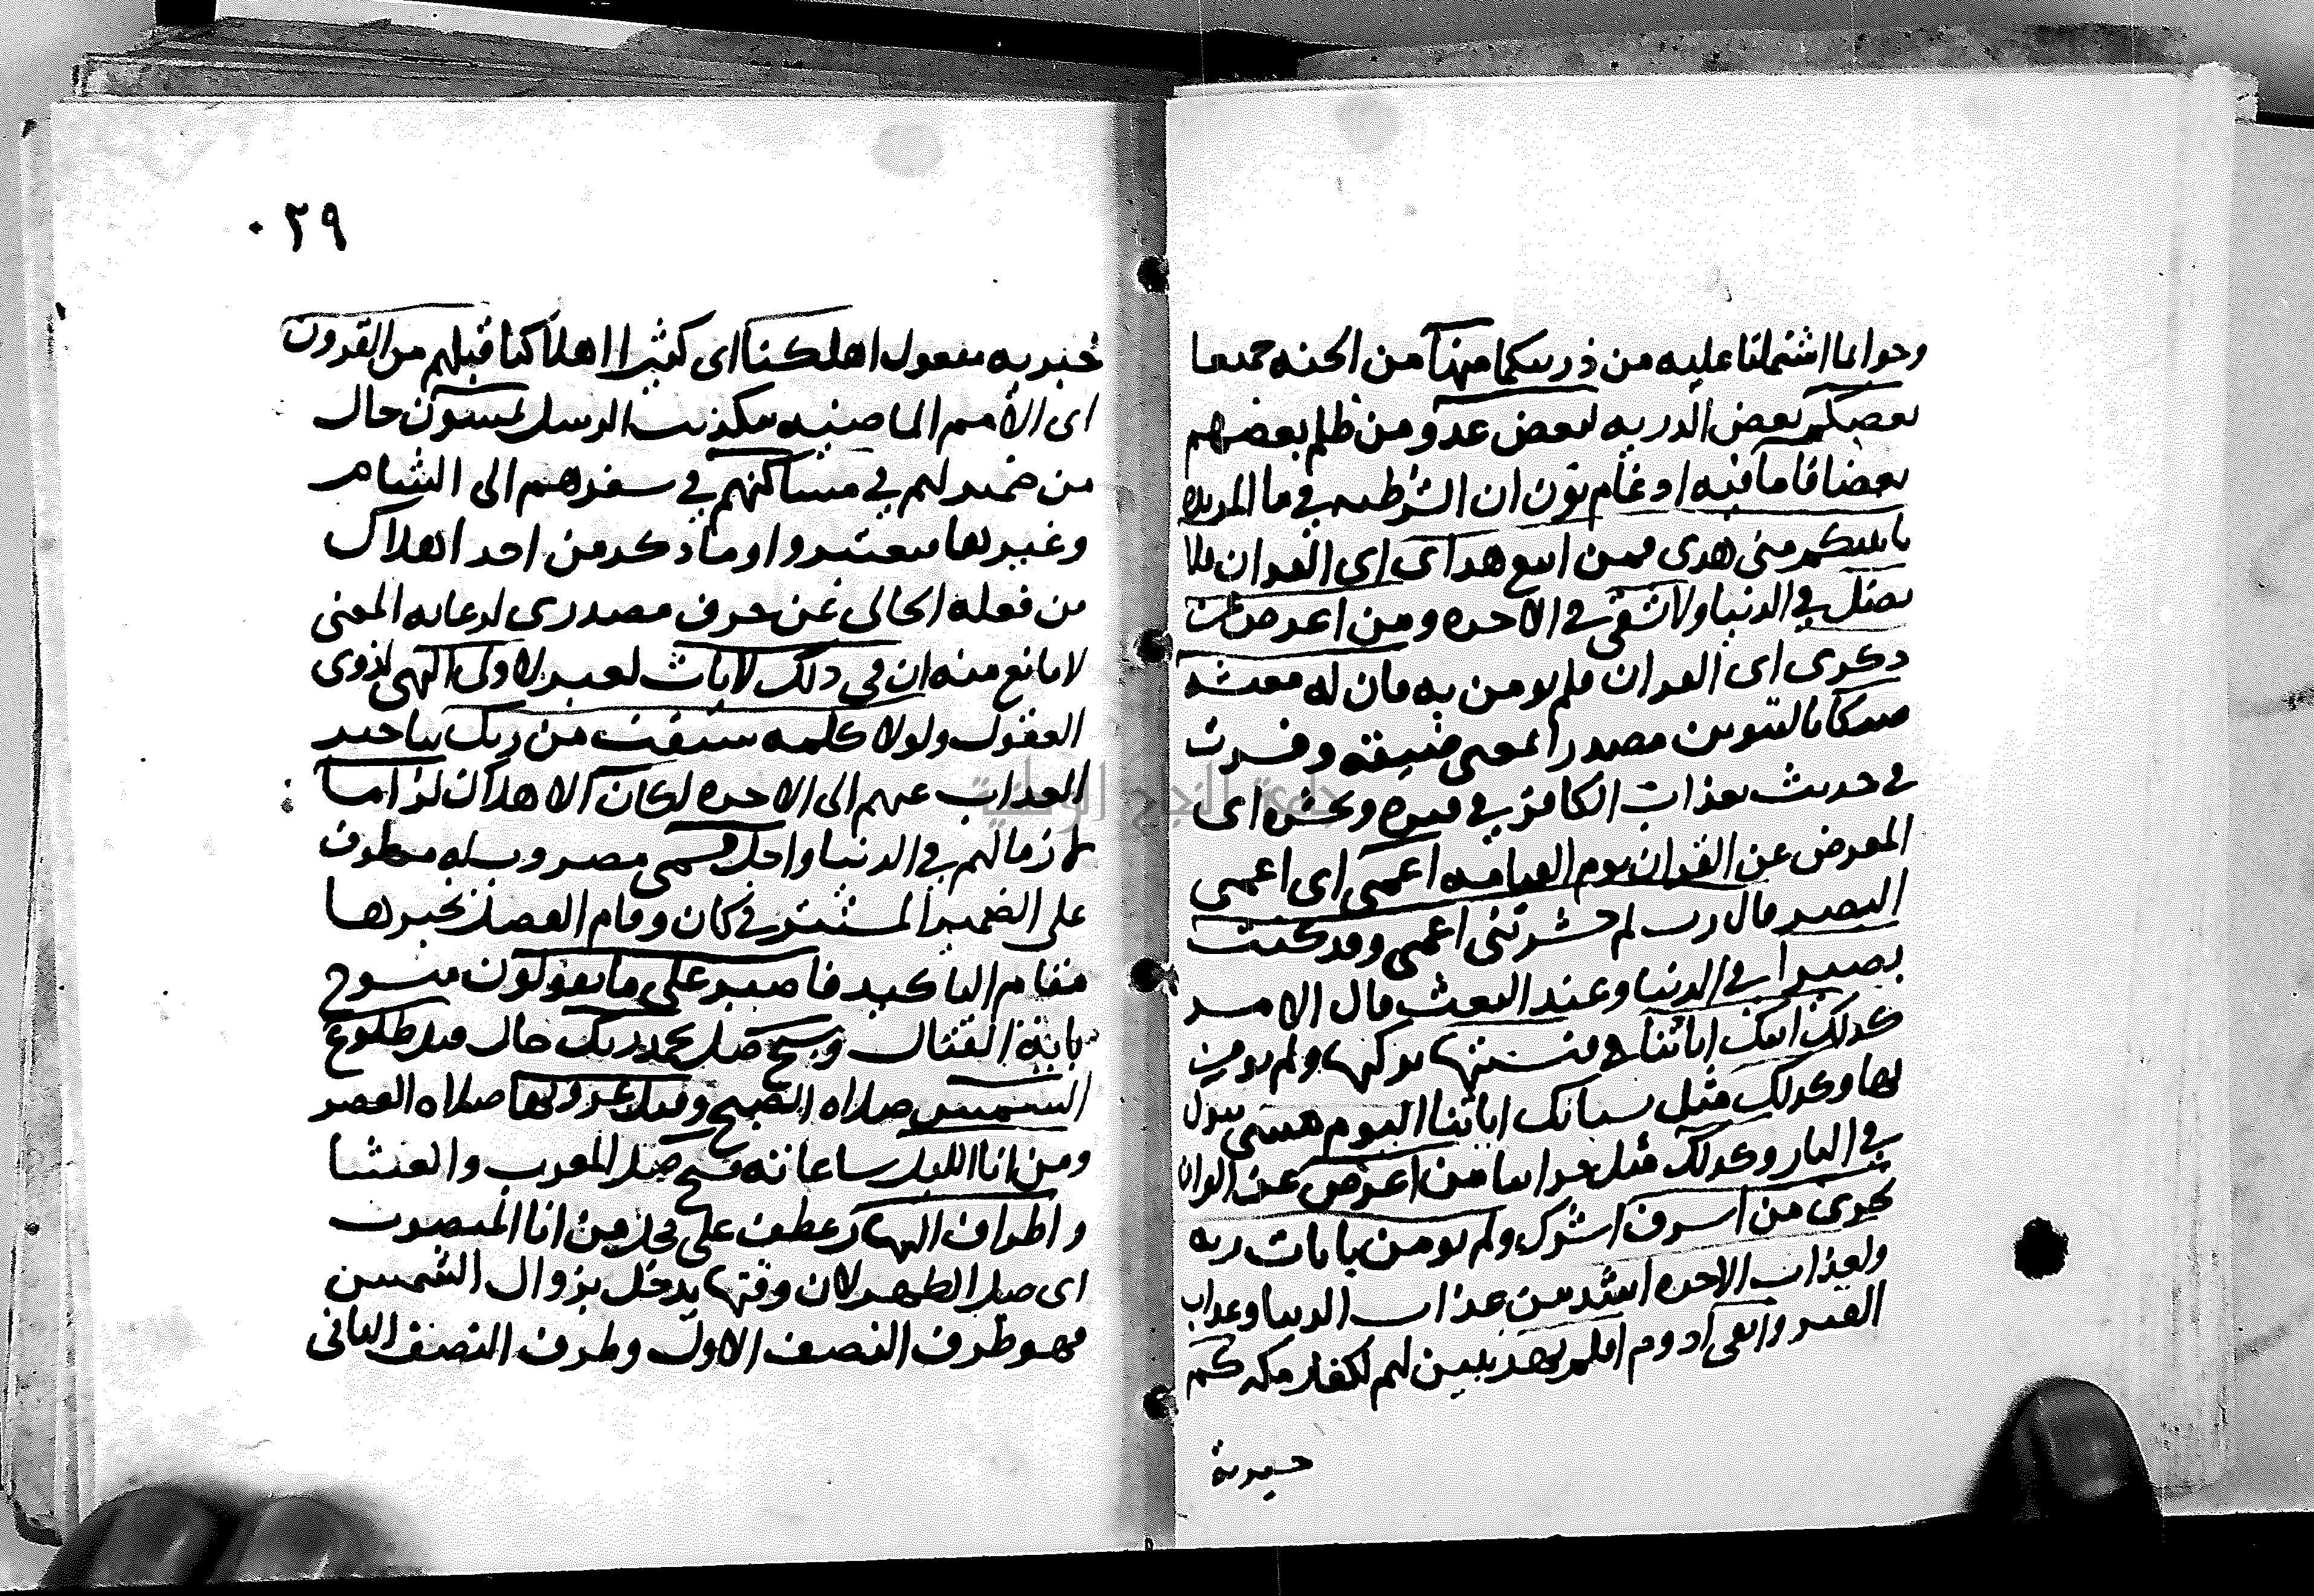 وحوا بما اشتملتا عليه من ذريتكما منها من الجنه جميعا
بعضكم بعض الذريه لبعض عدو من ظلم بعضهم
بعضا فاما فيه ادغام نون ان الشرطيه في ما المزيده
ياتينكم مني هدى فمن اتبع هداي اي القران فلا
يضل في الدنيا ولا يشقى في الاخره ومن اعرض عن
ذكري اي القران فلم يومن به فان له معيشه
ضنكا بالتنوين مصدر بمعنى ضيقه وفسرت
في حديث بعذاب الكافر في قبره ونحشره اي
المعرض عن القران يوم القيامه اعمى اي اعمى
البصر قال رب لم حشرتني اعمى وقد كنت
بصيرا في الدنيا وعند البعث قال الامر
كذلك اتتك اياتنا فنسيتها تركتها ولم تومن
بها وكذلك مثل نسيانك اياتنا اليوم تنسى تترك
في النار وكذلك مثل جزاينا من اعرض عن القران
نجزي من اسرف اشرك ولم يومن بايات ربه
ولعذاب الاخره اشد من عذاب الدنيا وعذاب
القبر وابقى ادوم افلم يهد يتبين لهم لكفار مكه كم
خبرية
٠٢٩
خبريه مفعول اهلكنا اي كثيرا اهلاكنا قبلهم من القرون
اي الأمم الماضيه بتكذيب الرسل يمشون حال
من ضمير لهم في مساكنهم في سفرهم الى الشام
وغيرها فيعتبروا وما ذكر من اخذ اهلاك
من فعله الخالي عن حرف مصدري لرعايه المعنى
لا مانع منه ان في ذلك لايات لعبر لاولي النهى لذوي
العقول ولولا كلمه سبقت من ربك بتاخير
العذاب عنهم الى الاخره لكان الاهلاك لزاما
لازما لهم في الدنيا واجل مسمى مضروب له معطوف
على الضمير المستتر في كان وقام الفصل بخبرها
مقام التاكيد فاصبر على ما يقولون منسوخ
باية القتال وسبح صل بحمد ربك حال قبل طلوع
الشمس صلاه الصبح وقبل غروبها صلاه العصر
ومن انا الليل ساعاته فسبح صل المغرب والعشا
واطراف النهار عطف على محل من انا المنصوب
اي صل الظهر لان وقتها يدخل بزوال الشمس
فهو طرف النصف الاول وطرف النصف الثاني
جامعة النجاح الوطنية